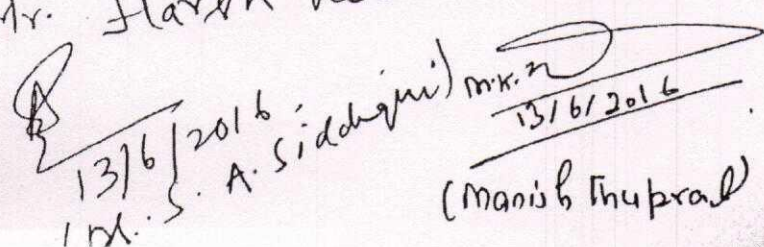 Mr. Harsh
13/6/2016
(Dr. S. A. Siddiqui)
M.K.
13/6/2016
(Manish Thupral)